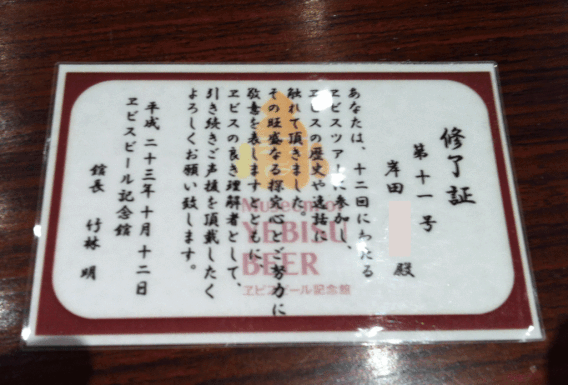 修了証
第十一号
岸田 殿
あなたは、十二回にわたる
ヱビスツアーに参加し、
ヱビスの歴史や逸話に
触れて頂きました。
その旺盛なる探究心とご努力に
敬意を表しますとともに、
ヱビスの良き理解者として、
引き続きご声援を頂戴したく
よろしくお願い致します。
平成二十三年十月十二日
ヱビスビール記念館
館長 竹林 明
Museum of
YEBISU
BEER
ヱビスビール記念館